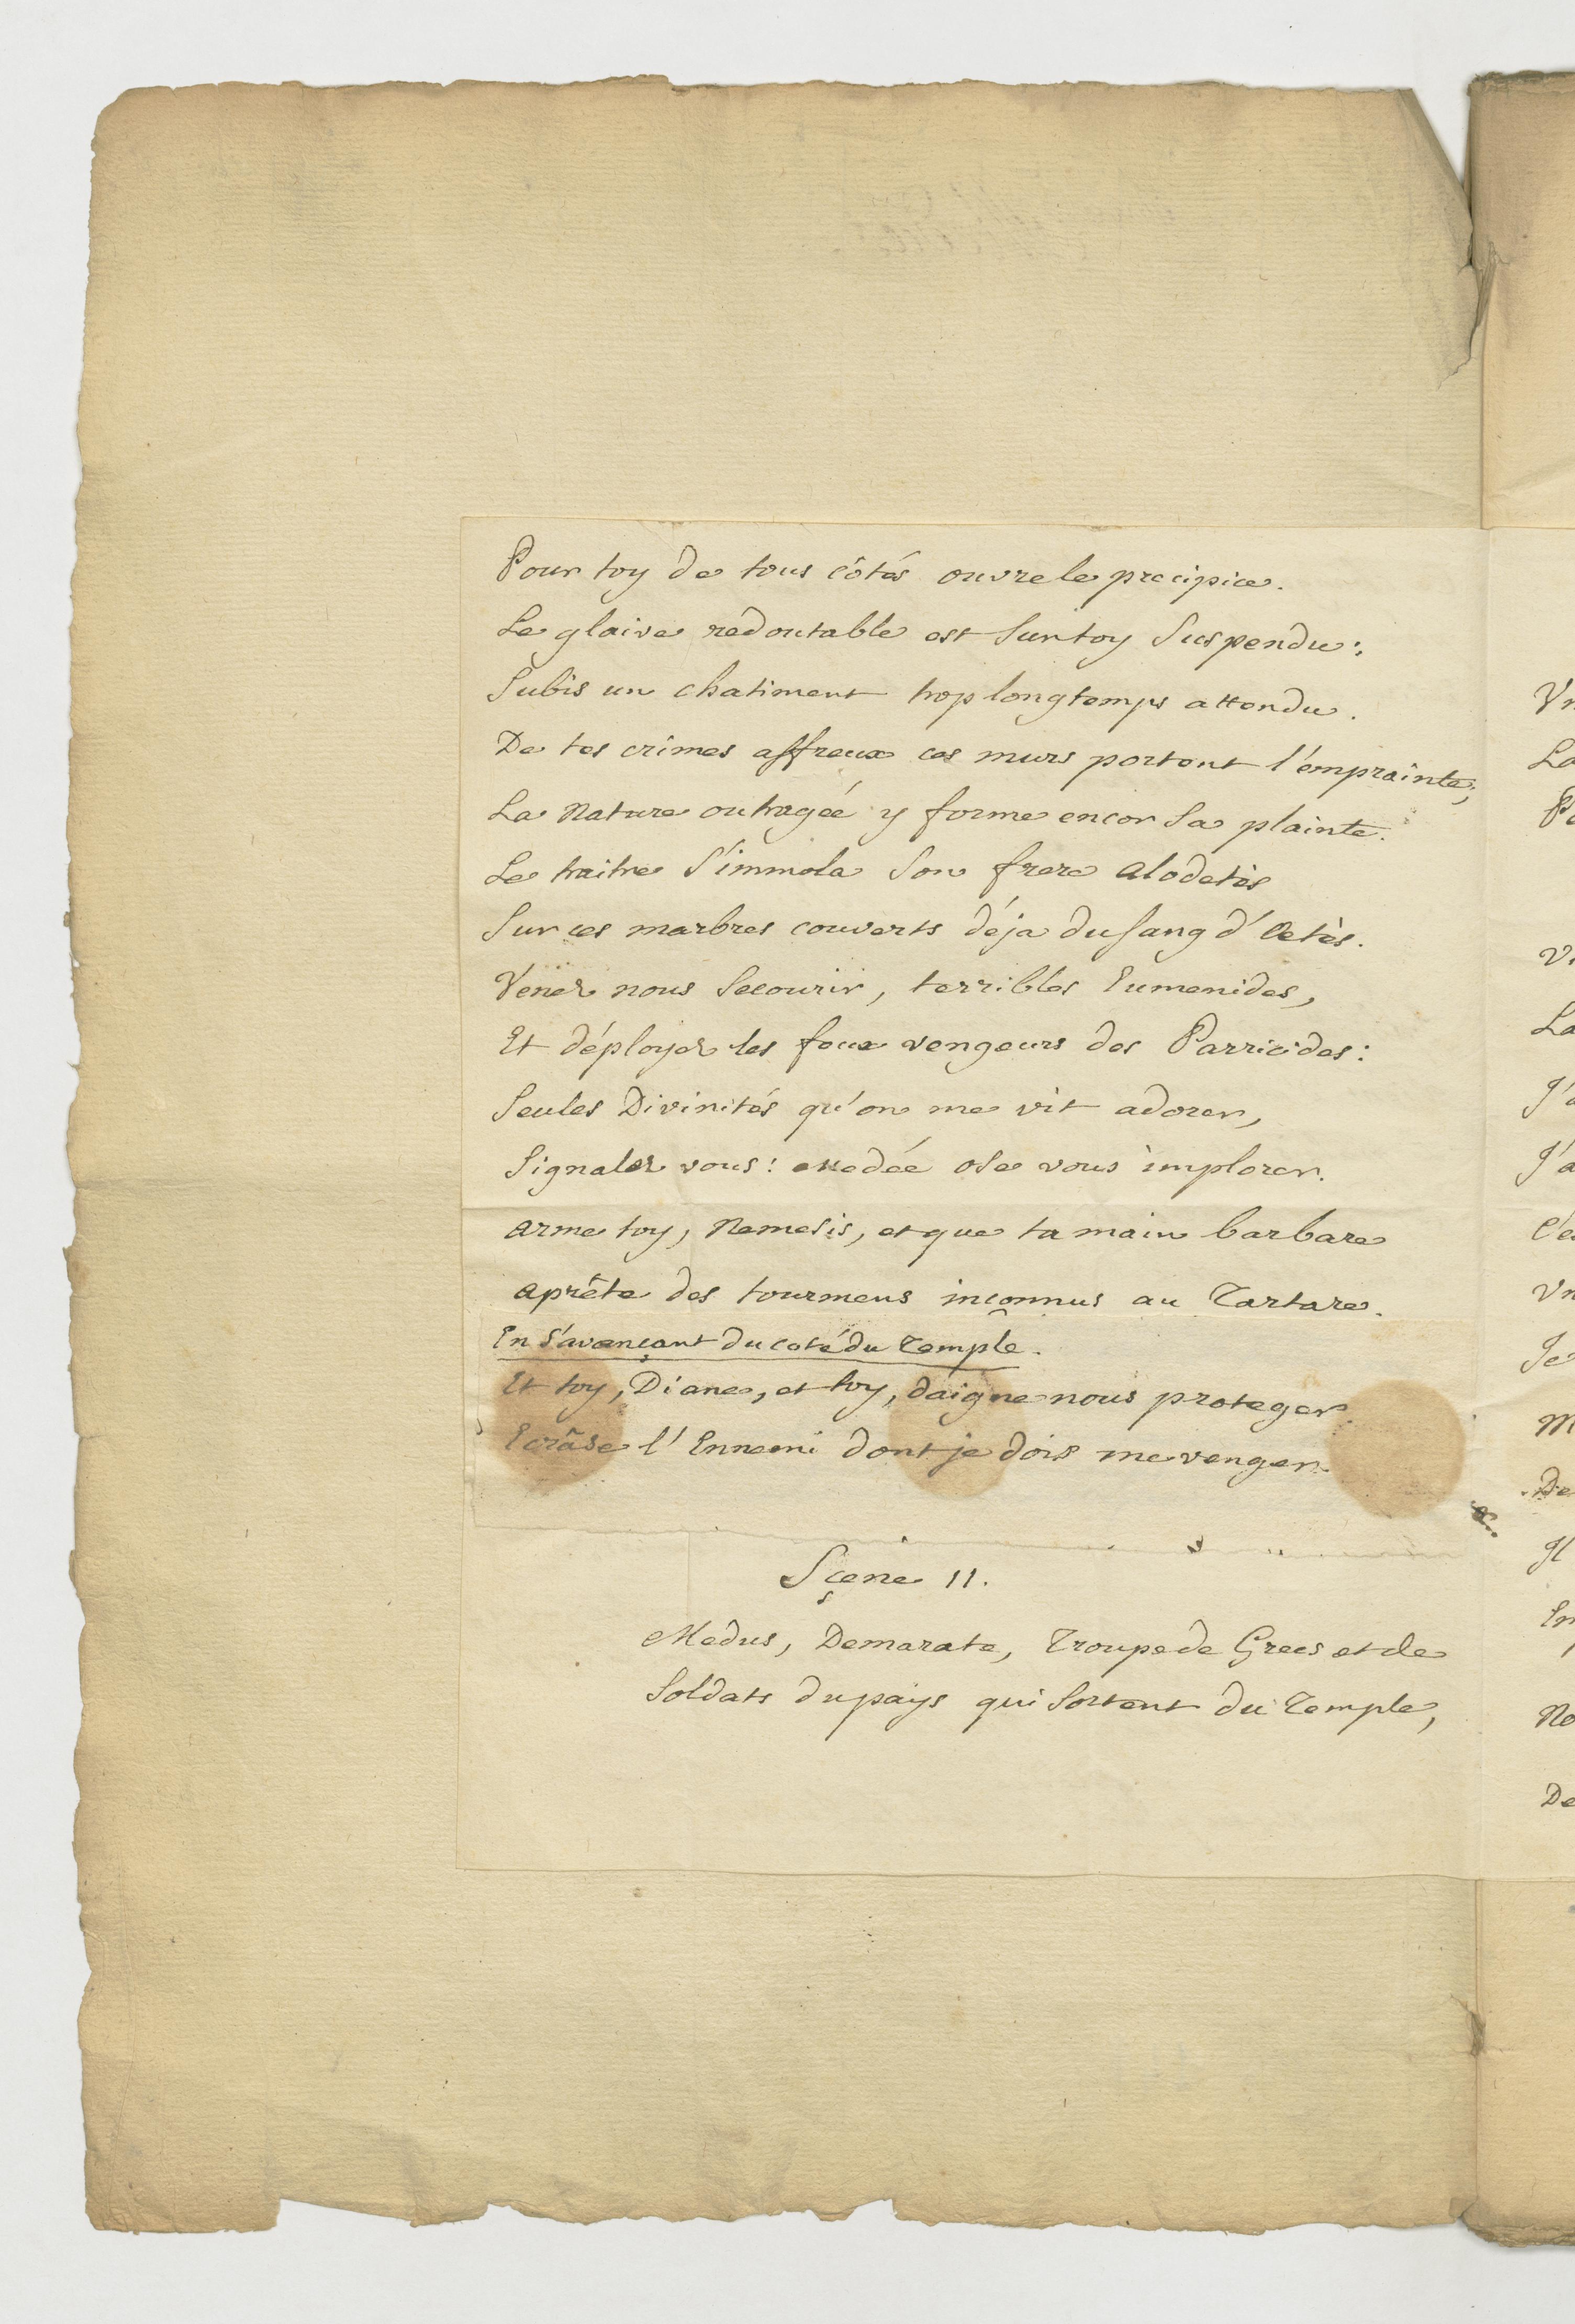 Pour toy de tous côtés ouvre le precipice.
Le glaive redoutable est sur toy suspendu:
Subis un chatiment trop longtemps attendu.
De tes crimes affreux ces murs portent l'emprainte;
La Nature outragée y forme encor sa plainte.
Le traitre s'immola son frere Alodetès
Sur ces marbres couverts déja du sang d'Oetès.
Venez nous secourir, terribles Eumenides,
Et déployez les feux vengeurs des Parricides:
Seules Divinités qu'on me vit adorer,
Signalez vous: Medée ose vous implorer.
arme toy, Nemesis, et que ta main barbare
aprête des tourmens inconnus au Tartare.
En s'avançant du coté du Temple.
Et toy, Diane, et toy, daigne nous proteger.
Ecrâse l'Ennemi dont je dois me venger.
Sçene 11.
Medus, Demarate, Troupe de Grecs et de
Soldats du pays qui sortent du Temple,
Vn
La
Po
La
J'a
J'a
C'e
Vn
Je
M
De
Il
En
No
De